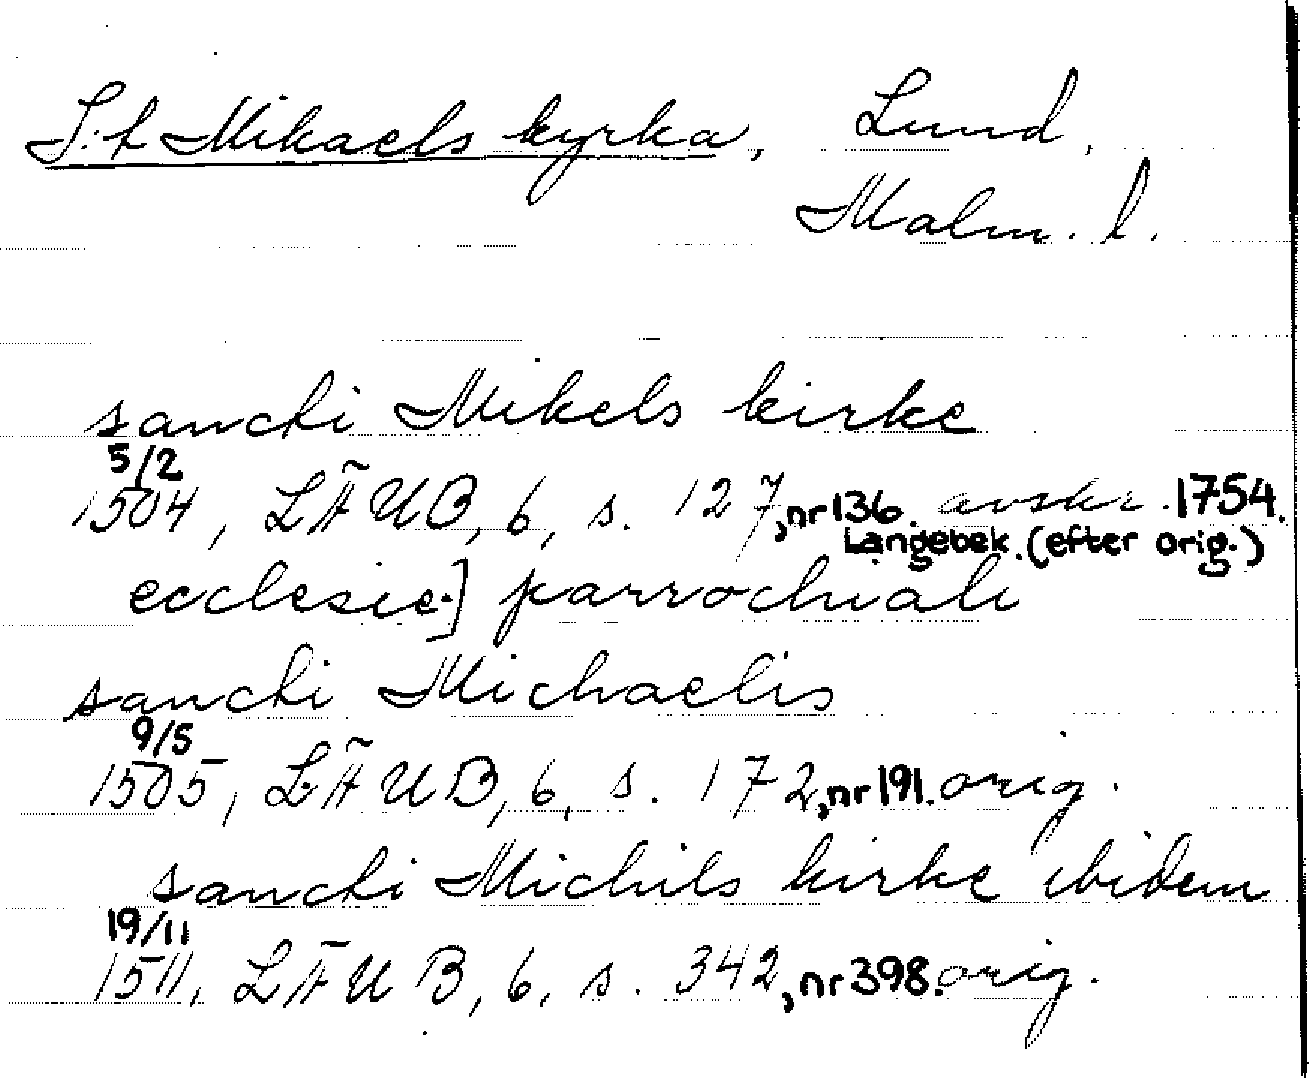 S:t Mikaels kyrka, Lund,
Malm. l.
sancti Mikels kirke
5/2
1504, LÄUB, 6, s. 127, nr 136. avskr. 1754.
Langebek. (efter orig.)
ecclesie] parrochiali
sancti Michaelis
9/5
1505, LÄUB, 6, s. 172, nr 191. orig.
sancti Michils kirke ibidem
19/11
1511, LÄUB, 6, s. 342, nr 398. orig.